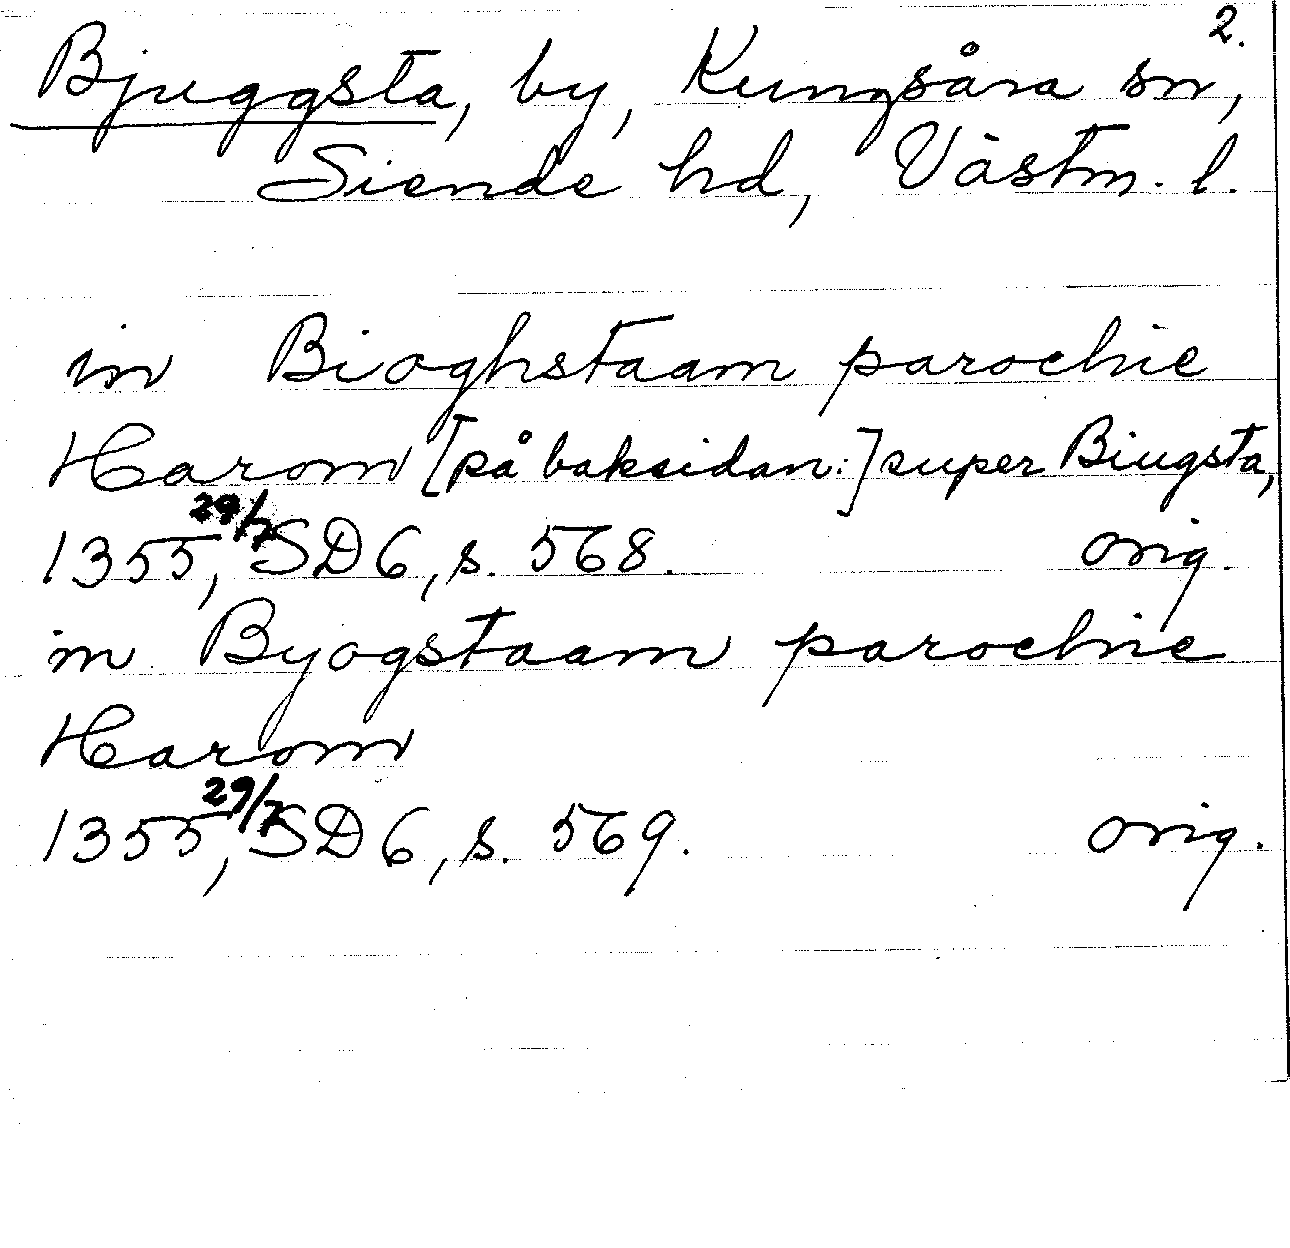 2.
Bjuggsta, by, Kungsåra sn,
Siende hd, Västm. l.
in Bioghstaam parochie
Harom [på baksidan:] super Biugsta,
1355 29/7, SD 6, s. 568. orig.
in Byogstaam parochie
Harom
1355 29/7, SD 6, s. 569. orig.